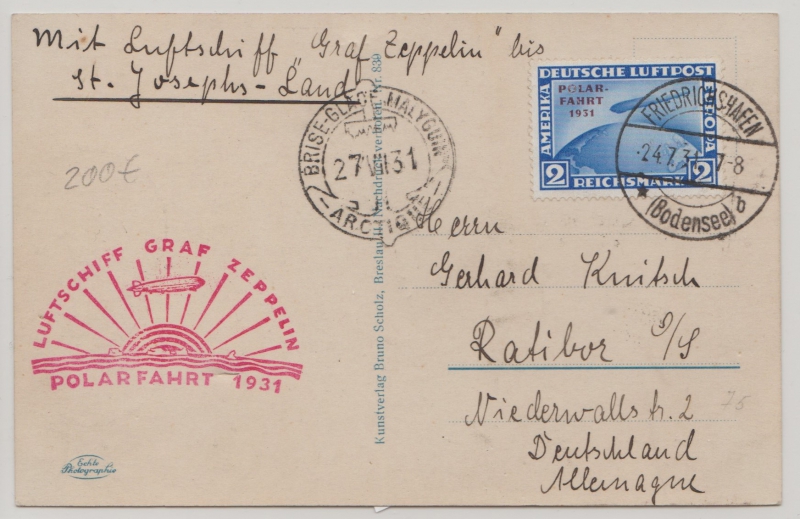 Mit Luftschiff "Graf Zeppelin" bis
St. Josephs-Land
DEUTSCHE LUFTPOST
AMERIKA
EUROPA
POLAR-
FAHRT
1931
2 REICHSMARK 2
FRIEDRICHSHAFEN
24.7.31 7-8
(Bodensee) b
BRISE-GLACE MALYGUIN
27 VII 31
200€
LUFTSCHIFF GRAF ZEPPELIN
POLARFAHRT 1931
Echte
Photographie
Kunstverlag Bruno Scholz, Breslau II Nachdruck verboten Nr. 839
Herrn
Gerhard Knitsch
Ratibor O/S
Niederwallstr. 2
Deutschland
Allemagne